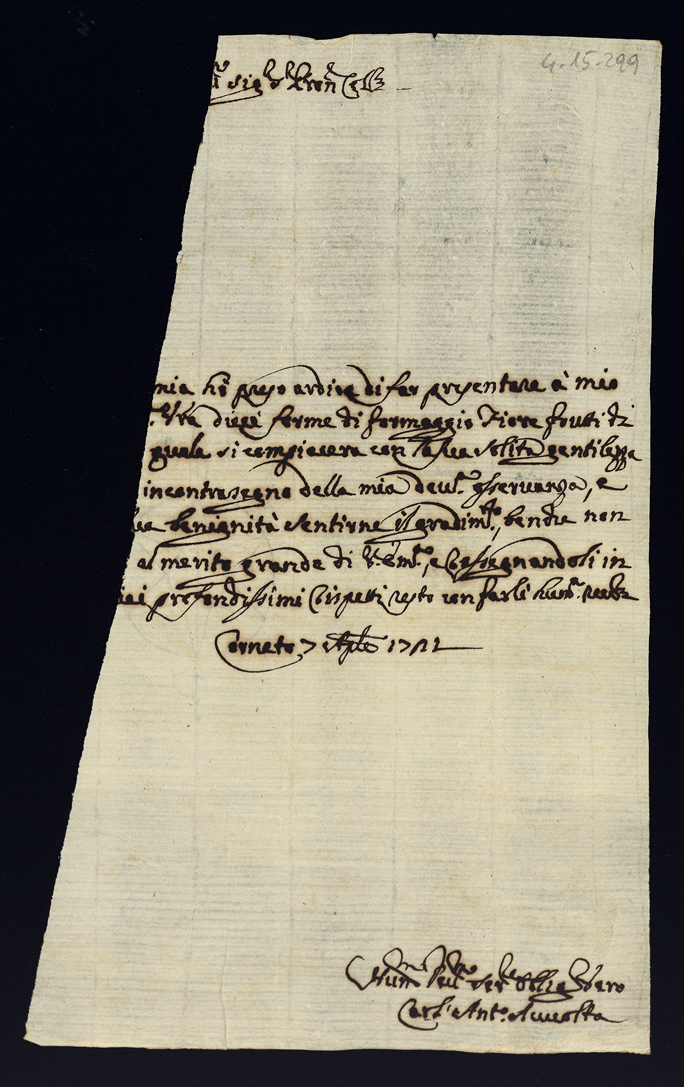 4.15.299
Sig.r Pron Col
mia hò preso ardire di far presentare à mio
Vra dieci forme di formaggio Fiore frutti di
quale si compiacerà con la sua solita gentilezza
incontrasegno della mia deu.ma osseruanza, e
sua benignità sentirne il gradim.to, benche non
al merito grande di V. Em.a, e Rassegnandoli in
miei profondissimi Rispetti resto con farli hum.ma
Corneto, 7
Hum.mo Deu.mo Ser.re Oblig.
Carl'Ant.o